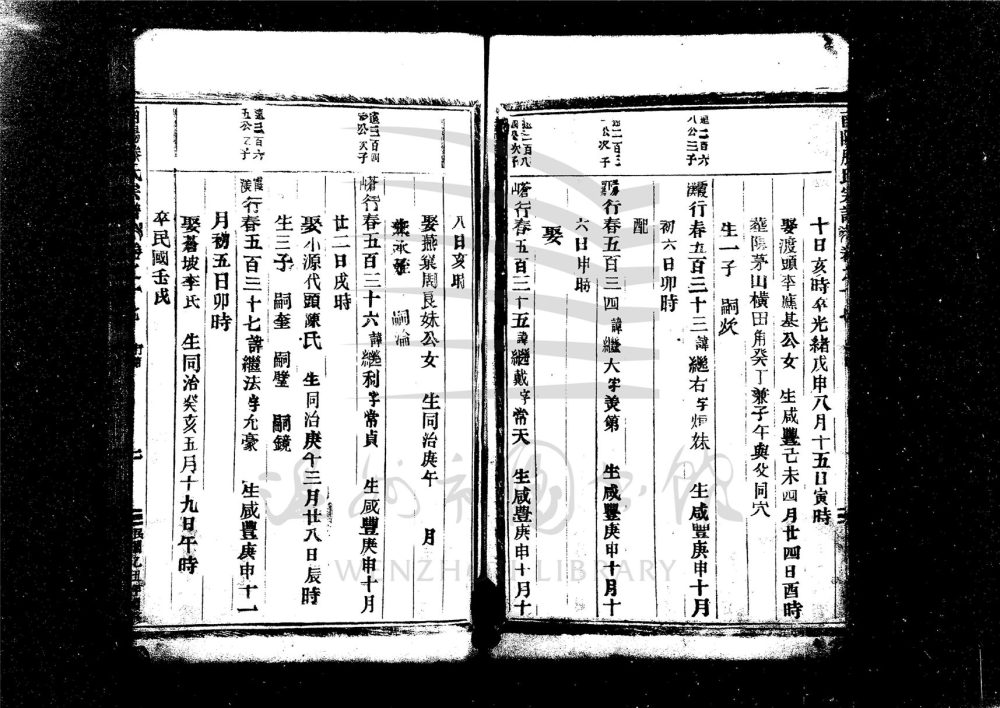 十日亥時卒光緒戊申八月十五日寅時
娶渡頭李應基公女 生咸豐己未四月廿四日酉時
葬陽茅山橫田角癸丁兼子午與父同穴
生一子 嗣炊
遠二百六
八公三子
霞行春五百三十三諱繼右字烜妹 生咸豐庚申十月
初六日卯時
配
公次子
行春五百三四 諱繼大字美第 生咸豐庚申十月十
六日申時
娶
遠二百八
次子
嶒行春五百三十五諱繼戴字常天 生咸豐庚申十月十
八日亥時
娶燕巢周良妹公女 生同治庚午 月
葉氷 嗣淪
遠三百四
公次子
行春五百三十六諱繼利字常貞 生咸豐庚申十月
廿二日戌時
娶小源代頭陳氏 生同治庚午三月廿八日辰時
生三子 嗣奎 嗣璧 嗣鏡
遠三百六
五公子
行春五百三十七諱繼法字允豪 生咸豐庚申十一
月初五日卯時
娶蒼坡李氏 生同治癸亥五月十九日午時
卒民國壬戌
溫州市圖書館
WENZHOU LIBRARY